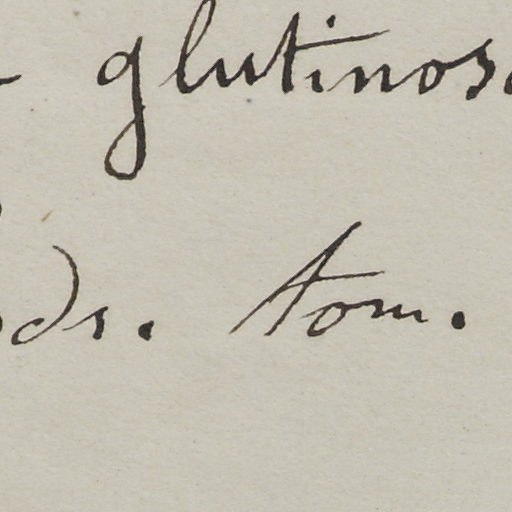 glutinosa
tom.